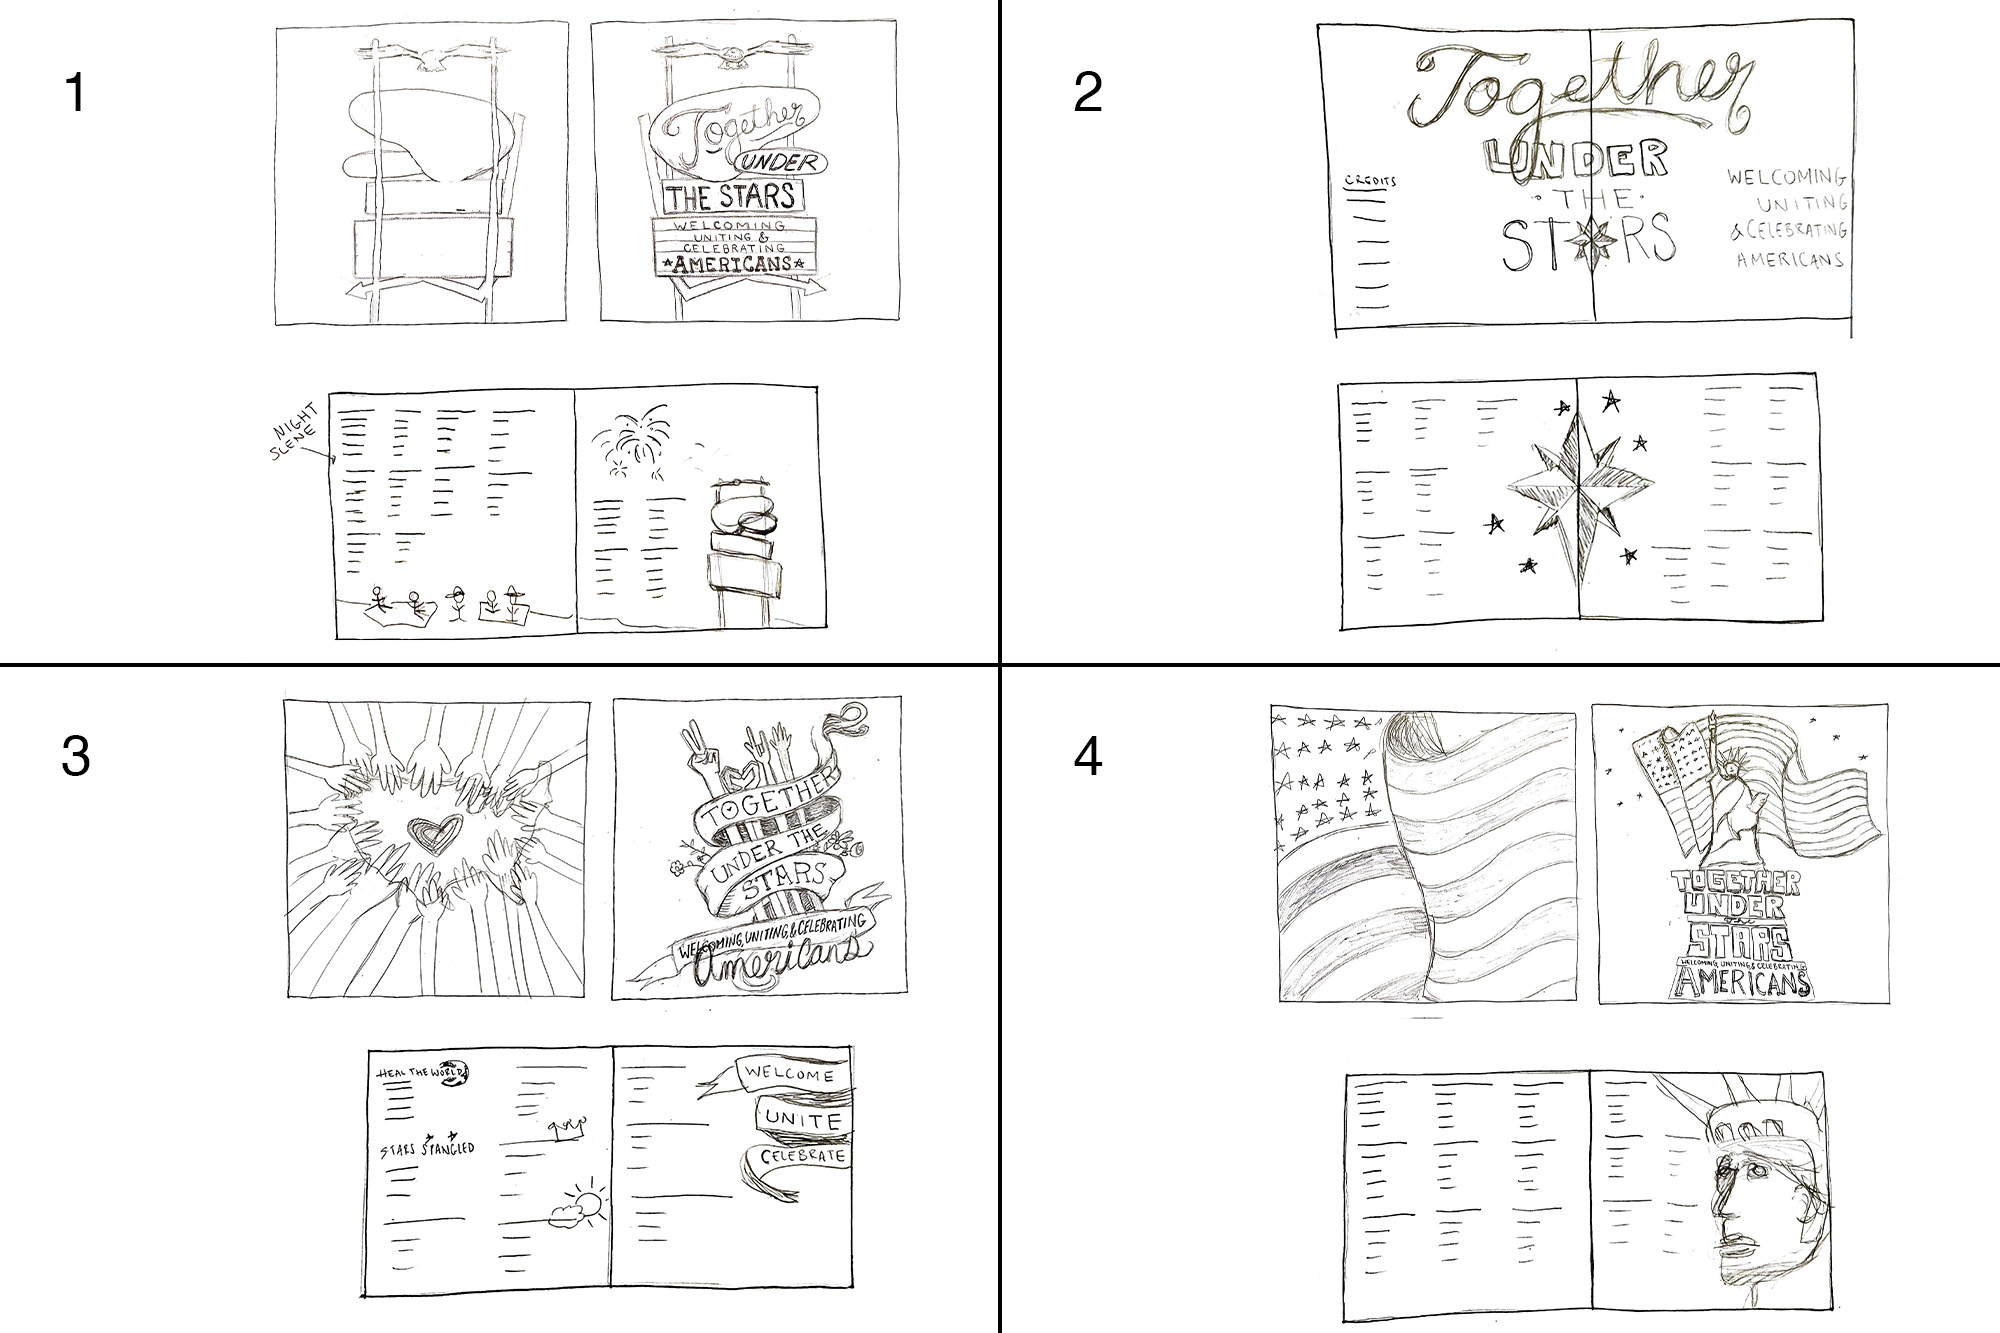 1
Together
UNDER
THE STARS
WELCOMING
UNITING &
CELEBRATING
★AMERICANS★
NIGHT
SCENE
2
Together
UNDER
·THE·
STARS
CREDITS
WELCOMING
UNITING
& CELEBRATING
AMERICANS
3
TOGETHER
UNDER THE
STARS
WELCOMING, UNITING, & CELEBRATING
Americans
HEAL THE WORLD
STARS SPANGLED
WELCOME
UNITE
CELEBRATE
4
TOGETHER
UNDER
THE
STARS
WELCOMING, UNITING & CELEBRATING
AMERICANS